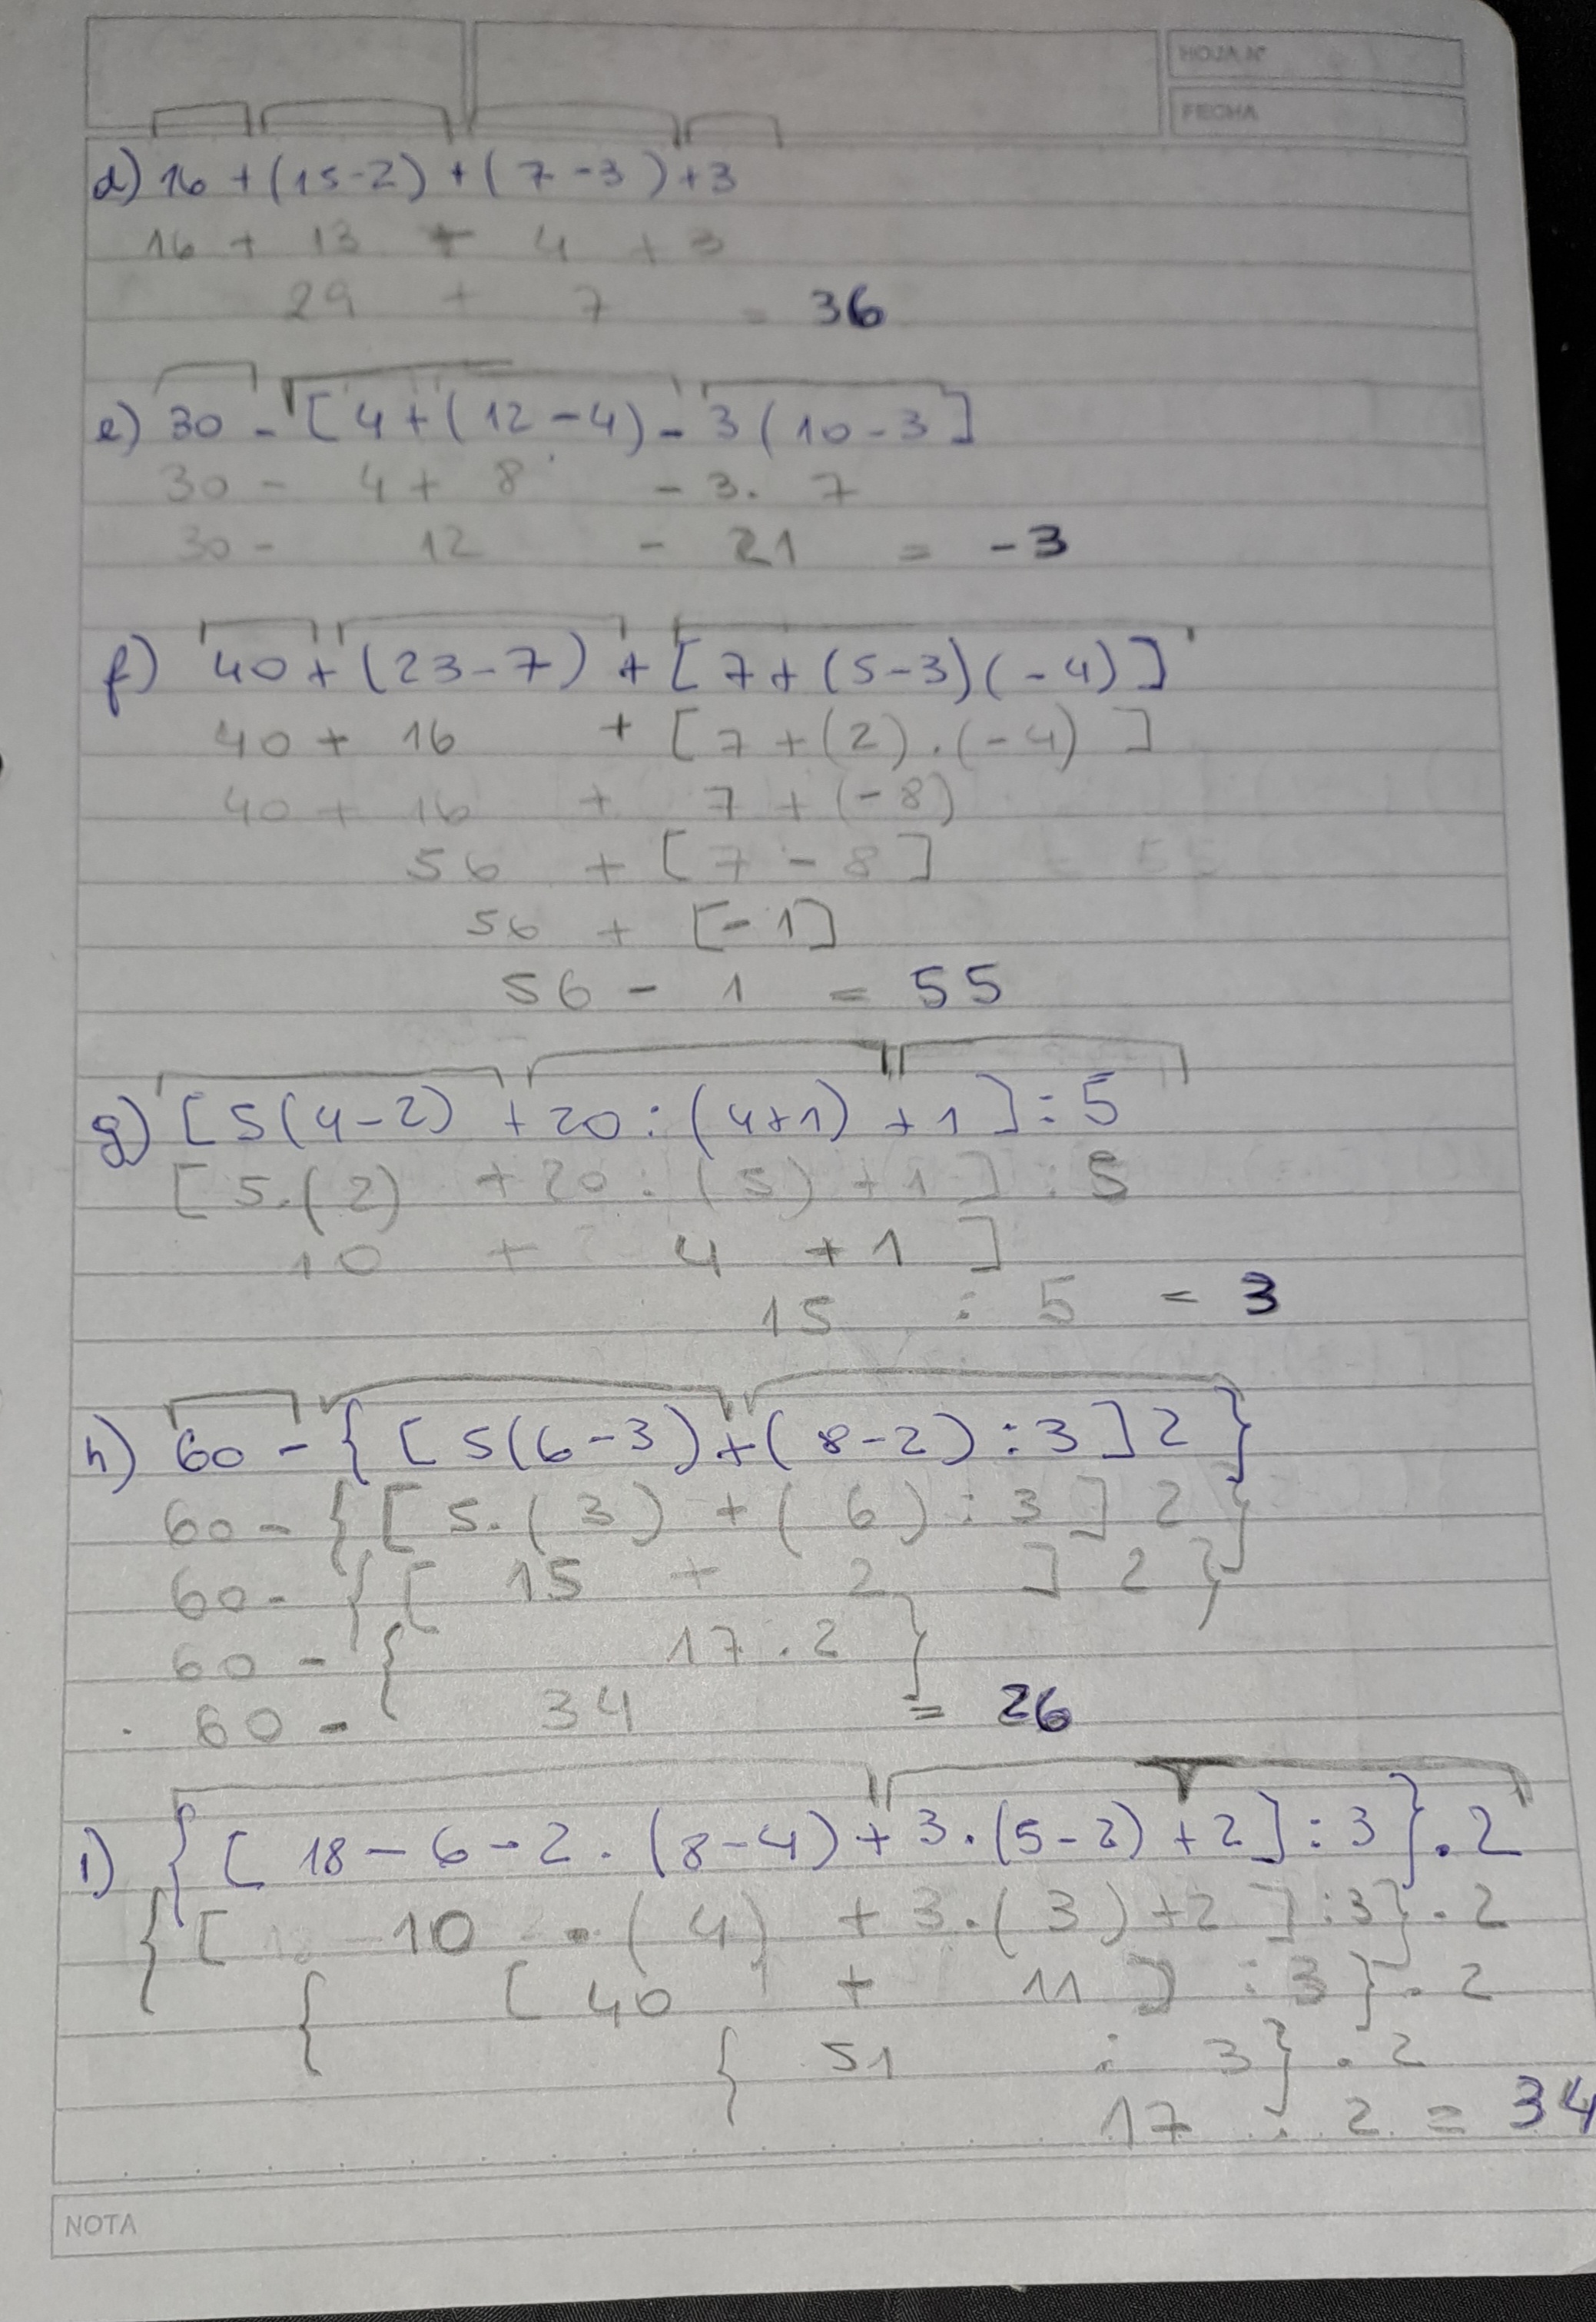 HOJA N°
FECHA
d) 16 + (15-2) + (7-3) + 3
16 + 13 + 4 + 3
29 + 7 = 36
e) 30 - [4+(12-4) - 3(10-3]
30 - 4 + 8 - 3. 7
30 - 12 - 21 = -3
f) 40 + (23-7) + [7 + (5-3)(-4)]
40 + 16 + [7 + (2).(-4)]
40 + 16 + 7 + (-8)
56 + [7 - 8]
56 + [-1]
56 - 1 = 55
g) [5(4-2) + 20 : (4+1) + 1] : 5
[5.(2) + 20 : (5) + 1] : 5
10 + 4 + 1 ]
15 : 5 = 3
h) 60 - {[5(6-3) + (8-2) : 3] 2}
60 - {[5.(3) + (6) : 3] 2}
60 - {[ 15 + 2 ] 2}
60 - { 17 . 2 }
60 - 34 = 26
i) {[18 - 6 - 2 . (8-4) + 3.(5-2) + 2] : 3} . 2
{[ 10 . (4) + 3.(3) + 2 ] : 3} . 2
{ [ 40 + 11 ] : 3} . 2
{ 51 : 3} . 2
17 . 2 = 34
NOTA